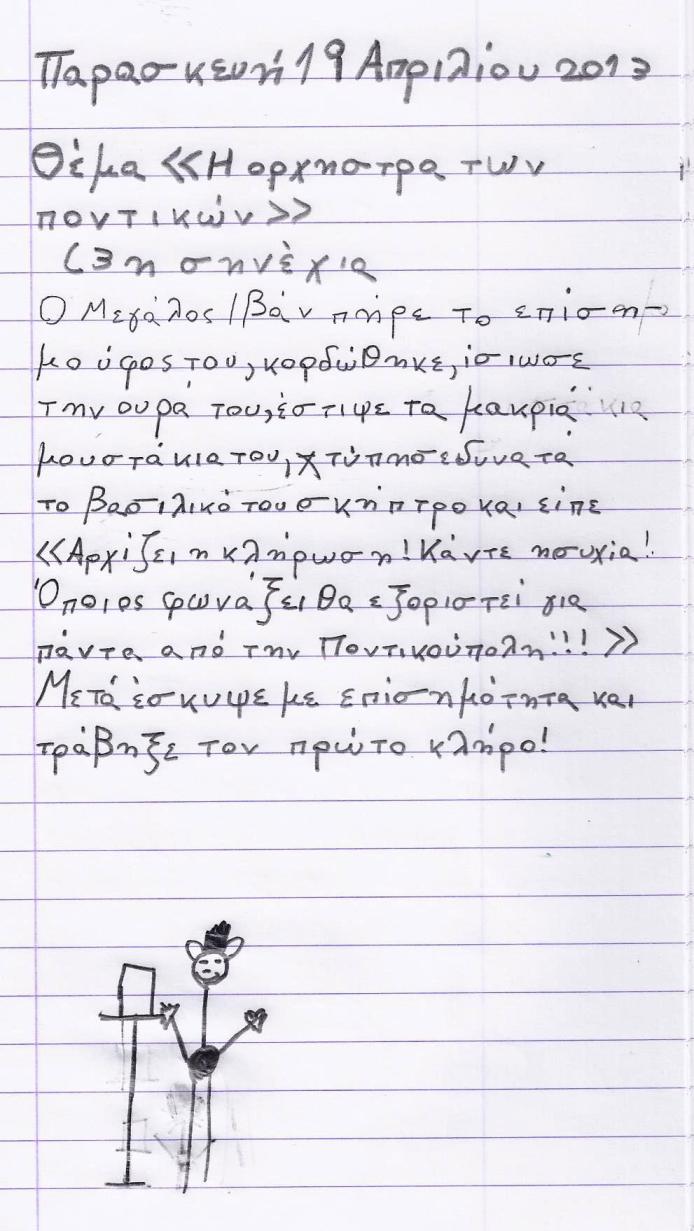 Παρασκευή 19 Απριλίου 2013
Θέμα <<Η ορχηστρα των
ποντικών>>
(3η σηνέχια
Ο Μεγάλος Ιβάν πήρε το επίση-
μο ύφος του, κορδώθηκε, ίσιωσε
την ουρά του, έστιψε τα μακριά
μουστάκια του, χτύπησε δυνατά
το βασιλικό του σκήπτρο και είπε
<<Αρχίζει η κλήρωση! Κάντε ησυχία!
Όποιος φωνάξει θα εξοριστεί για
πάντα από την Ποντικούπολη!!! >>
Μετά έσκυψε με επισημότητα και
τράβηξε τον πρώτο κλήρο!